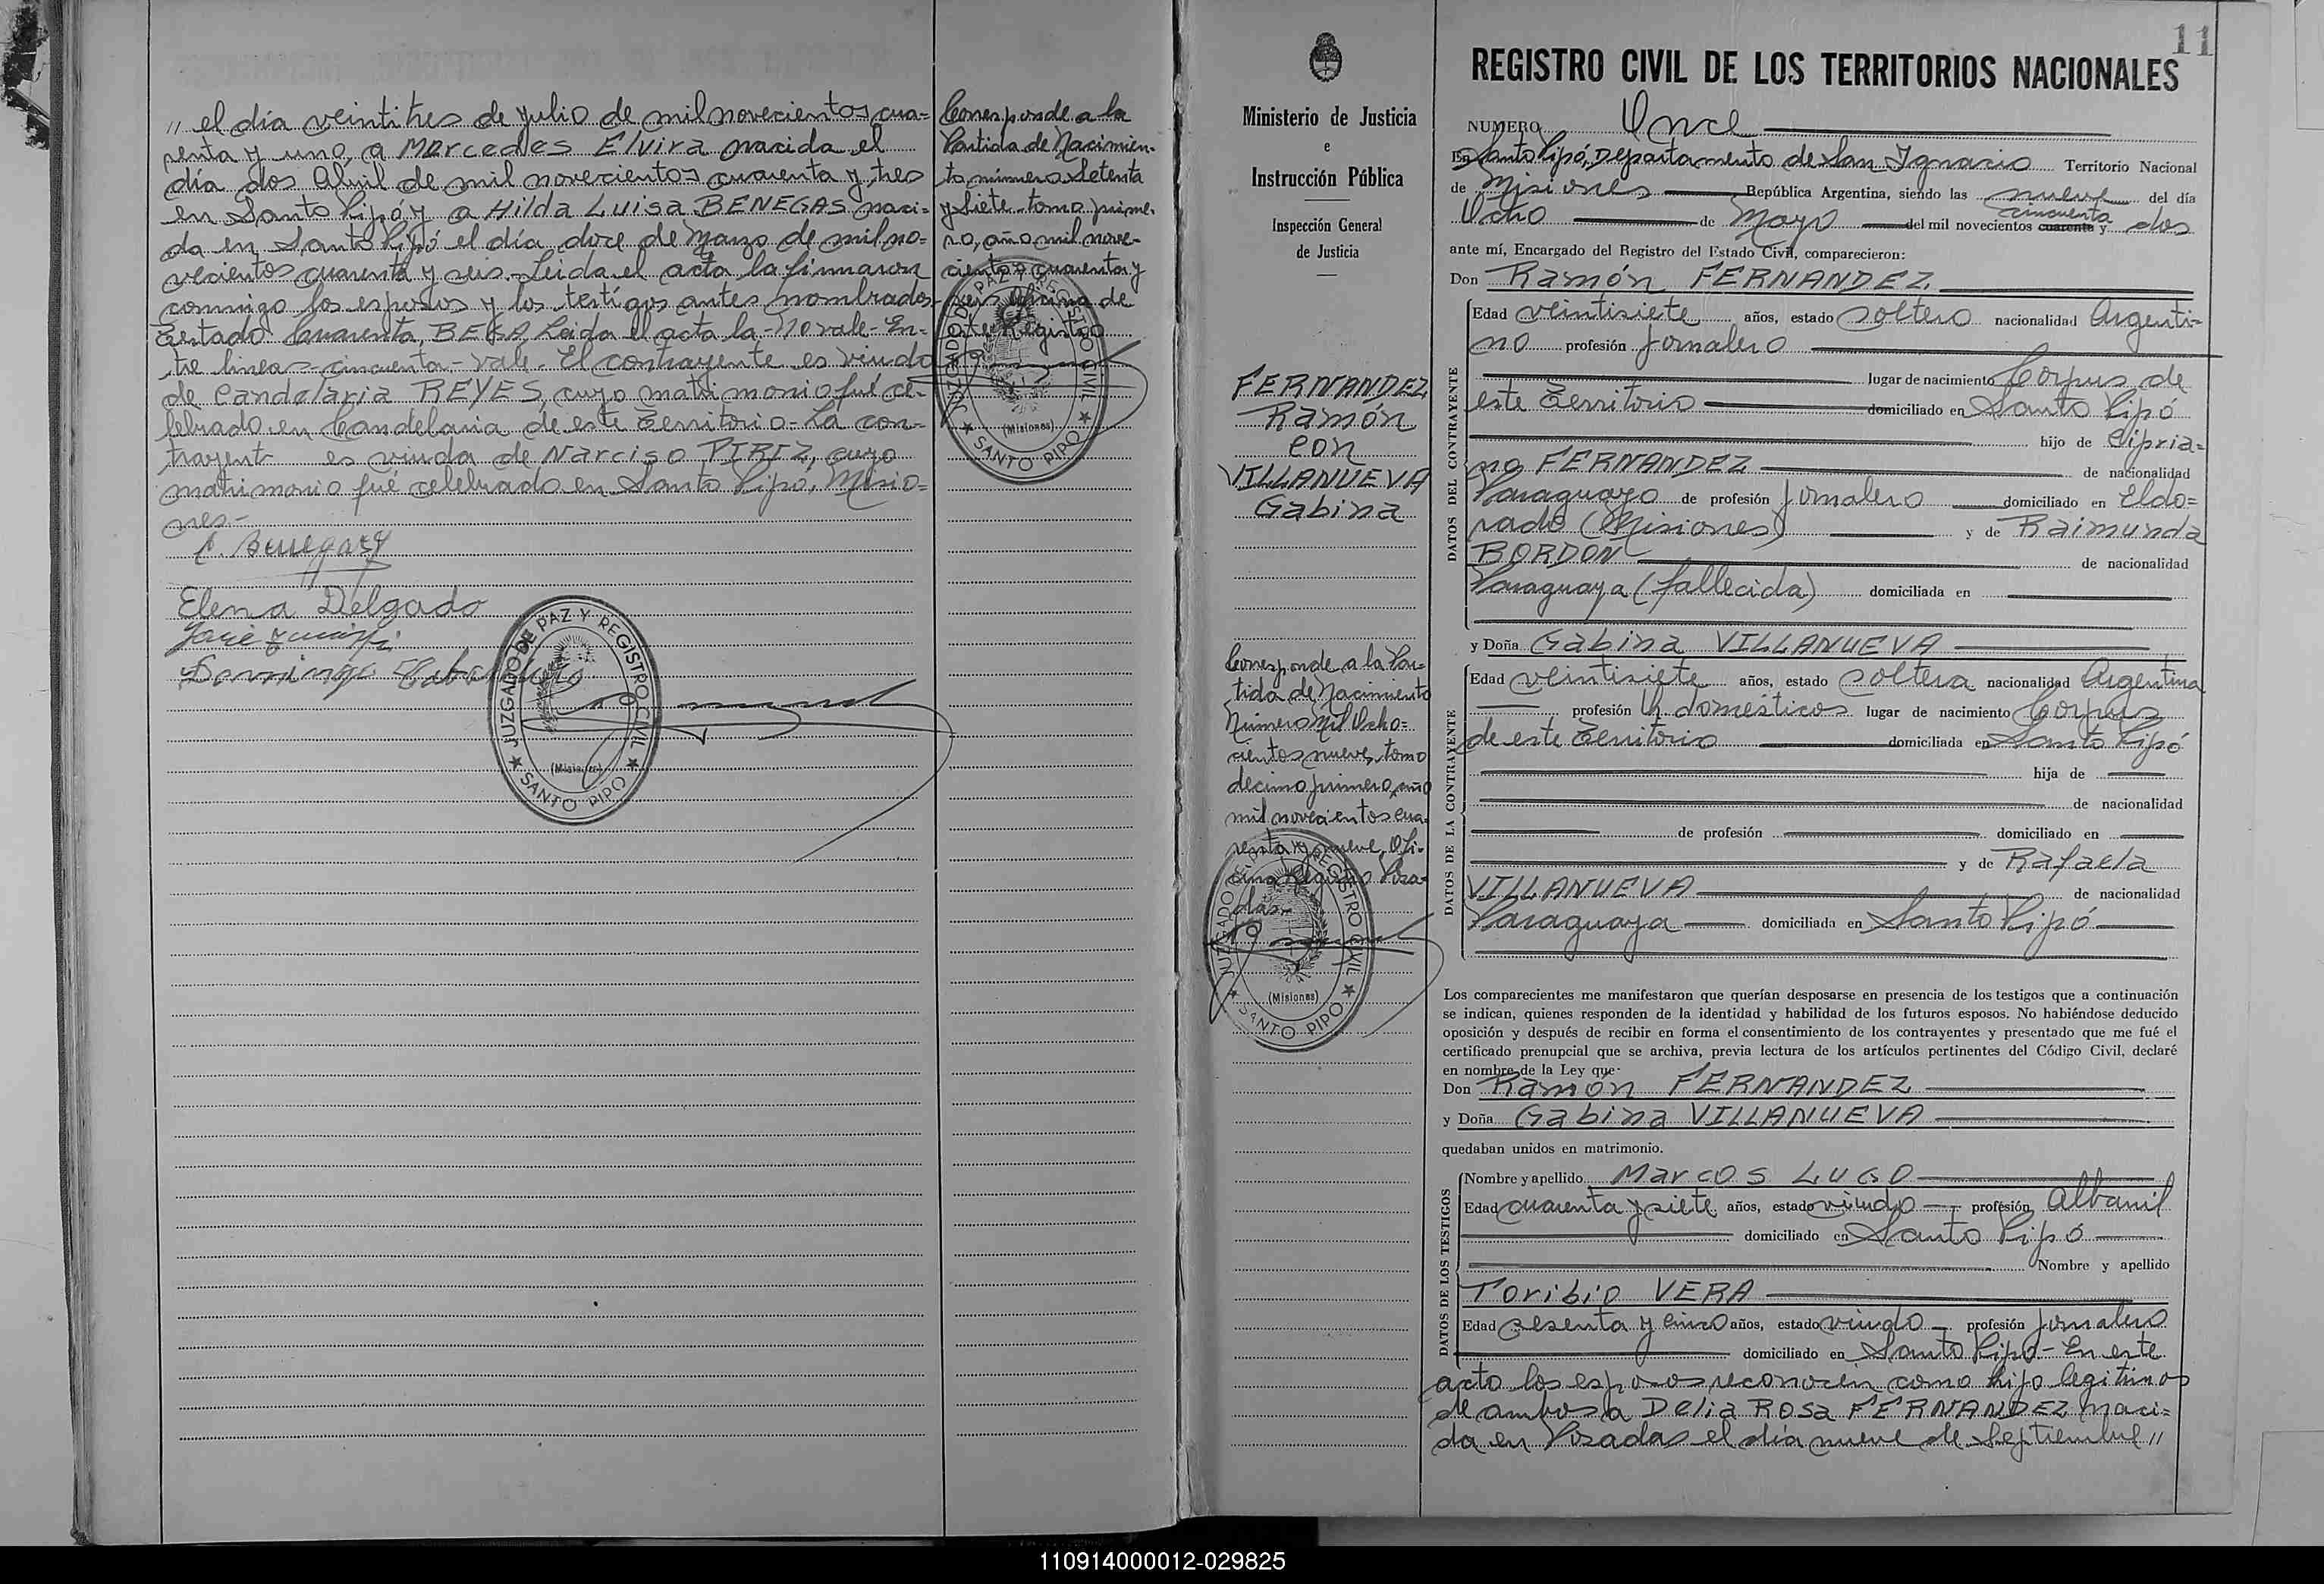 〃 el día veintitres de julio de mil novecientos cua=
renta y uno, a Mercedes Elvira nacida el
día dos Abril de mil novecientos cuarenta y tres
en Santo Pipó y a Hilda Luisa BENEGAS naci=
da en Santo Pipó el día doce de Marzo de mil no=
vecientos cuarenta y seis. Leida el acta la firmaron
conmigo los esposos y los testigos antes nombrados
Testado Cuarenta, BEGA, Leida el acta la - No vale - En=
tre lineas - cincuenta - Vale. El contrayente es viudo
de Candelaria REYES, cuyo matrimonio fué ce=
lebrado en Candelaria de este Territorio - La con=
trayent es viuda de Narciso PIREZ, cuyo
matrimonio fué celebrado en Santo Pipó, Misio=
nes -
Elena Delgado
JUZGADO DE PAZ Y REGISTRO CIVIL
(Misiones)
★ SANTO PIPO ★
Corresponde a la
Partida de Nacimien-
to número Setenta
y Siete - tomo prime-
ro, año mil nove-
cientos cuarenta y
seis Oficina de
este Registro
JUZGADO DE PAZ Y REGISTRO CIVIL
(Misiones)
★ SANTO PIPO ★
Ministerio de Justicia
e
Instrucción Pública
Inspección General
de Justicia
FERNANDEZ
Ramón
con
VILLANUEVA
Gabina
Corresponde a la Par=
tida de Nacimiento
Número Mil Ocho=
cientos nueve, tomo
decimo primero, año
mil novecientos cua-
renta y nueve, Ofi-
cina Registro Posa-
das -
JUZGADO DE PAZ Y REGISTRO CIVIL
(Misiones)
★ SANTO PIPO ★
11
REGISTRO CIVIL DE LOS TERRITORIOS NACIONALES
NUMERO Once
En Santo Pipó, Departamento de San Ignacio Territorio Nacional
de Misiones República Argentina, siendo las nueve del día
cincuenta
Ocho de Mayo del mil novecientos cuarenta y dos
ante mí, Encargado del Registro del Estado Civil, comparecieron:
Don Ramón FERNANDEZ
DATOS DEL CONTRAYENTE
Edad veintisiete años, estado soltero nacionalidad Argenti=
no profesión Jornalero
lugar de nacimiento Corpus de
este Territorio domiciliado en Santo Pipó
hijo de Cipria=
no FERNANDEZ de nacionalidad
Paraguayo de profesión Jornalero domiciliado en Eldo=
rado (Misiones) y de Raimunda
BORDON de nacionalidad
Paraguaya (fallecida) domiciliada en
y Doña Gabina VILLANUEVA
DATOS DE LA CONTRAYENTE
Edad veintisiete años, estado soltera nacionalidad Argentina
profesión Q. domésticos lugar de nacimiento Corpus
de este Territorio domiciliada en Santo Pipó
hija de
de nacionalidad
de profesión domiciliado en
y de Rafaela
VILLANUEVA de nacionalidad
Paraguaya domiciliada en Santo Pipó
Los comparecientes me manifestaron que querían desposarse en presencia de los testigos que a continuación
se indican, quienes responden de la identidad y habilidad de los futuros esposos. No habiéndose deducido
oposición y después de recibir en forma el consentimiento de los contrayentes y presentado que me fué el
certificado prenupcial que se archiva, previa lectura de los artículos pertinentes del Código Civil, declaré
en nombre de la Ley que·
Don Ramón FERNANDEZ
y Doña Gabina VILLANUEVA
quedaban unidos en matrimonio.
DATOS DE LOS TESTIGOS
Nombre y apellido Marcos LUGO
Edad cuarenta y siete años, estado viudo profesión Albanil
domiciliado en Santo Pipó
Nombre y apellido
Toribio VERA
Edad sesenta y cinco años, estado viudo profesión Jornalero
domiciliado en Santo Pipó - En este
acto los esposos reconocen como hijo legitimos
de ambos a Delia Rosa FERNANDEZ naci=
da en Posadas el día nueve de Septiembre 〃
110914000012-029825